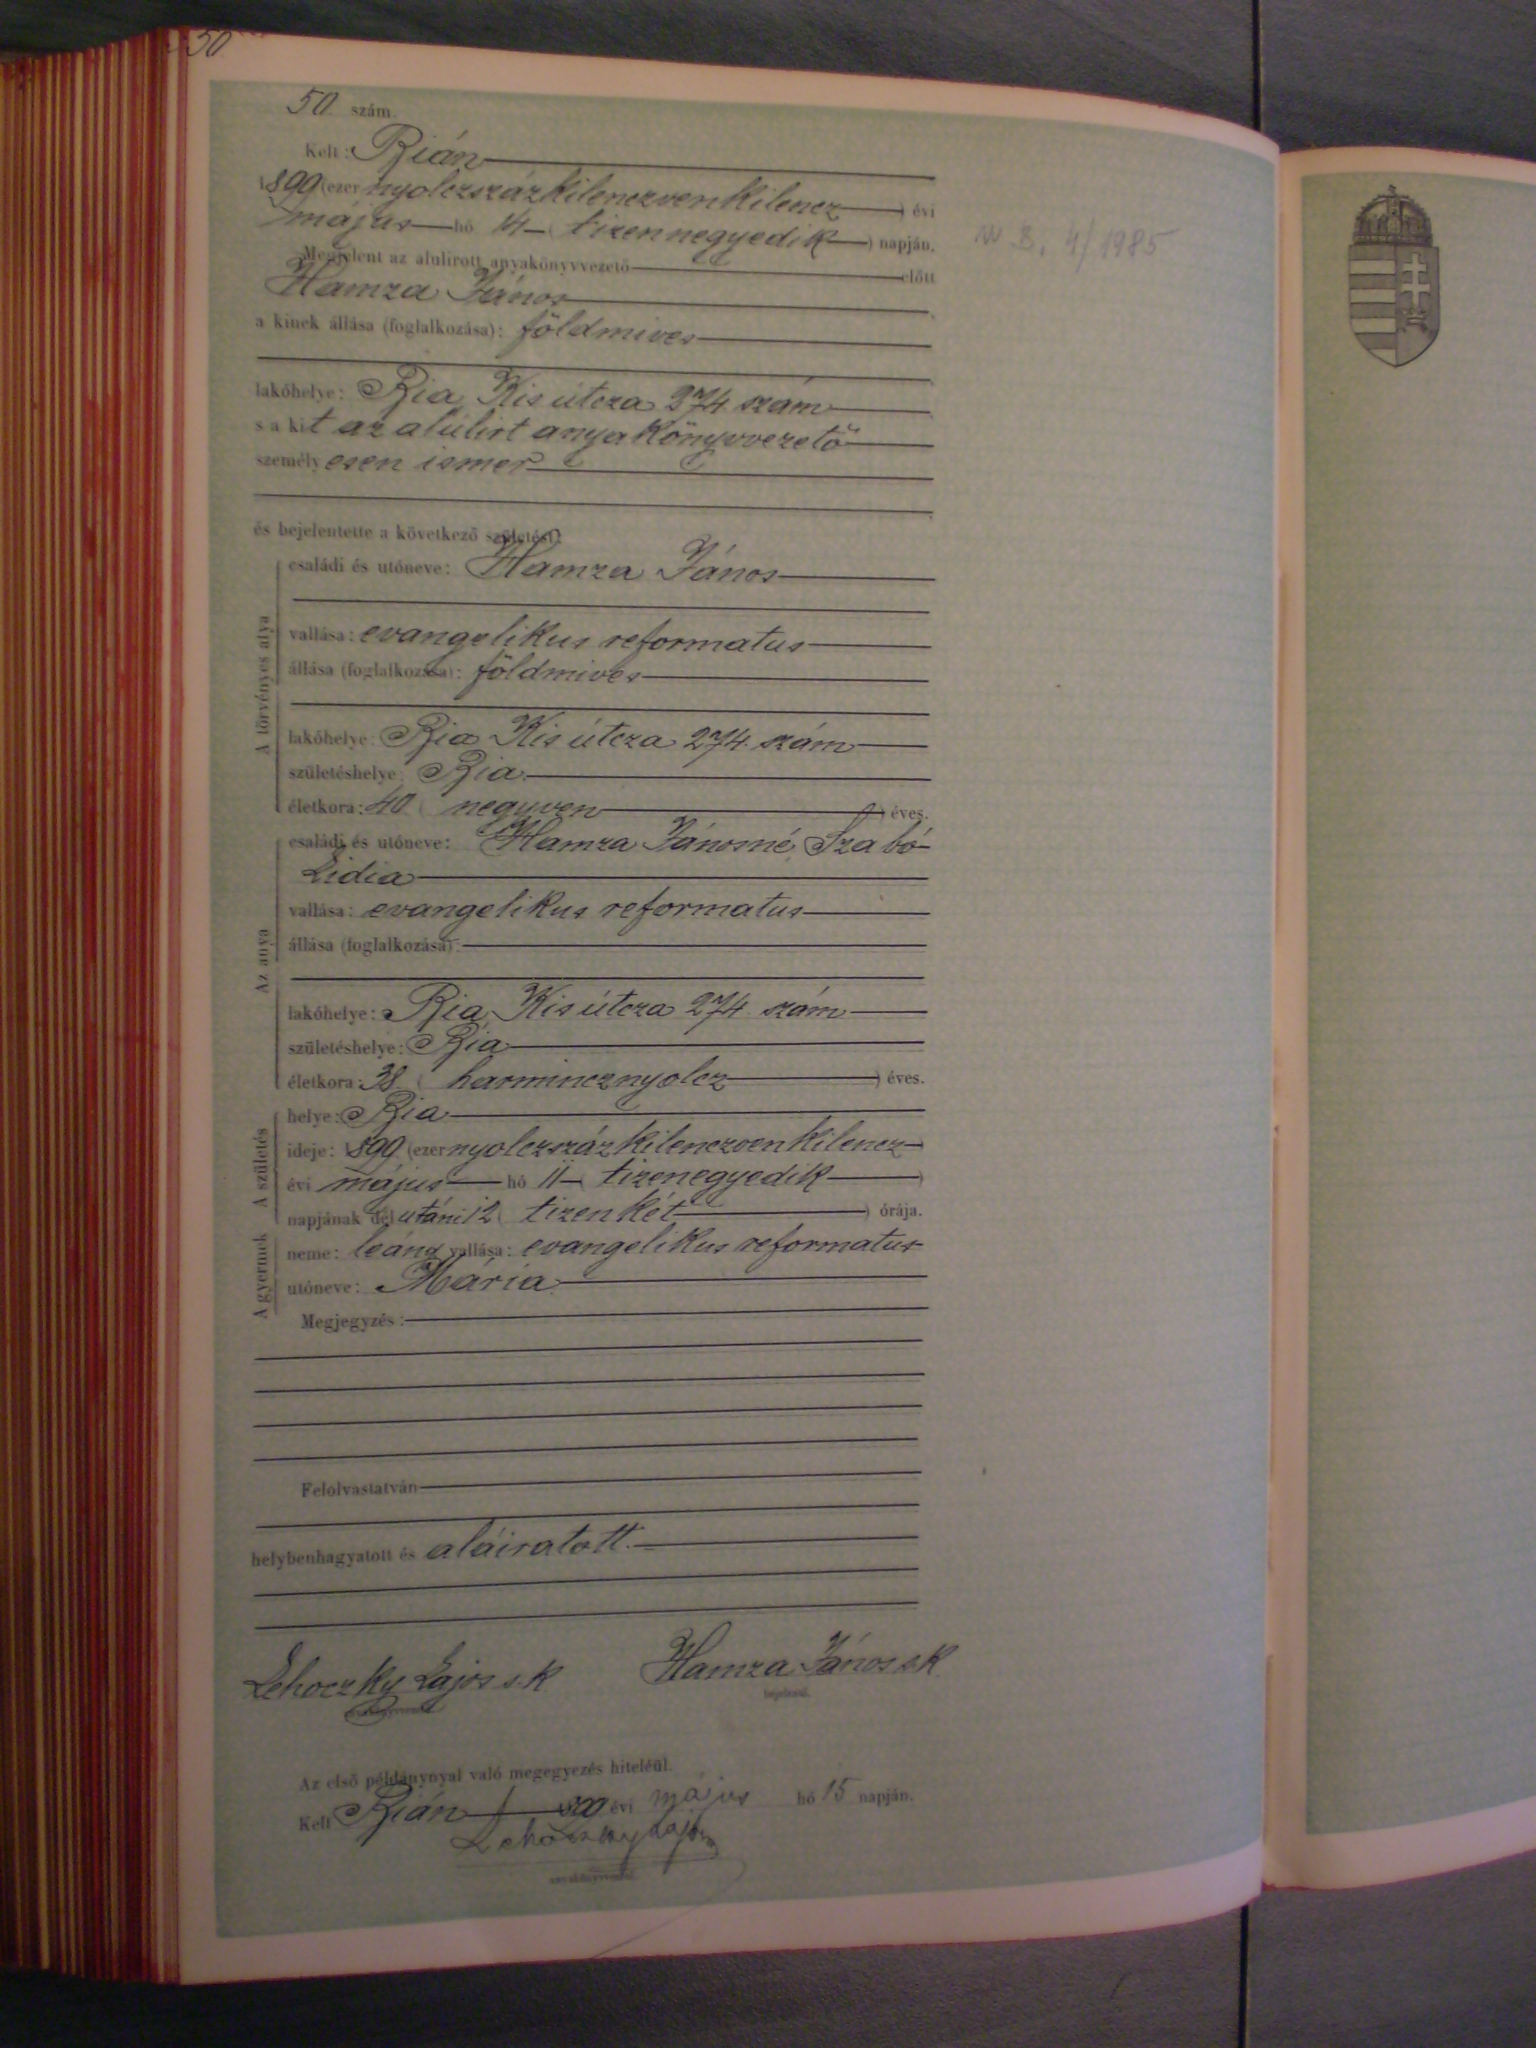 50
50 szám.
Kelt: Bián
1899 (ezer nyolczszázkilenczvenkilencz) évi
május hó 14 (tizennegyedik) napján.
Megjelent az alulirott anyakönyvvezető előtt
Hamza János
a kinek állása (foglalkozása): földmives
lakóhelye: Bia Kis útcza 274. szám
s a kit az alúlirt anyakönyvvezető
személyesen ismer
és bejelentette a következő születést:
A törvényes atya
családi és utóneve: Hamza János
vallása: evangelikus reformatus
állása (foglalkozása): földmives
lakóhelye: Bia Kis útcza 274. szám
születéshelye: Bia
életkora: 40 (negyven) éves.
Az anya
családi és utóneve: Hamza Jánosné, Szabó
Lidia
vallása: evangelikus reformatus
állása (foglalkozása):
lakóhelye: Bia Kis útcza 274. szám
születéshelye: Bia
életkora: 38. (harmincznyolcz) éves.
A születés
helye: Bia
ideje: 1899 (ezer nyolczszázkilenczvenkilencz
évi május hó 11 (tizenegyedik)
napjának délutáni 12 (tizenkét) órája.
A gyermek
neme: leány vallása: evangelikus reformatus
utóneve: Mária
Megjegyzés:
Felolvastatván
helybenhagyatott és aláiratott.
Lehoczky Lajos s.k. Hamza János s.k.
anyakönyvvezető. bejelentő.
Az első példánynyal való megegyezés hiteléül.
Kelt Bián 1899 évi május hó 15 napján.
Lehoczky Lajos
anyakönyvvezető.
B. 4/1985